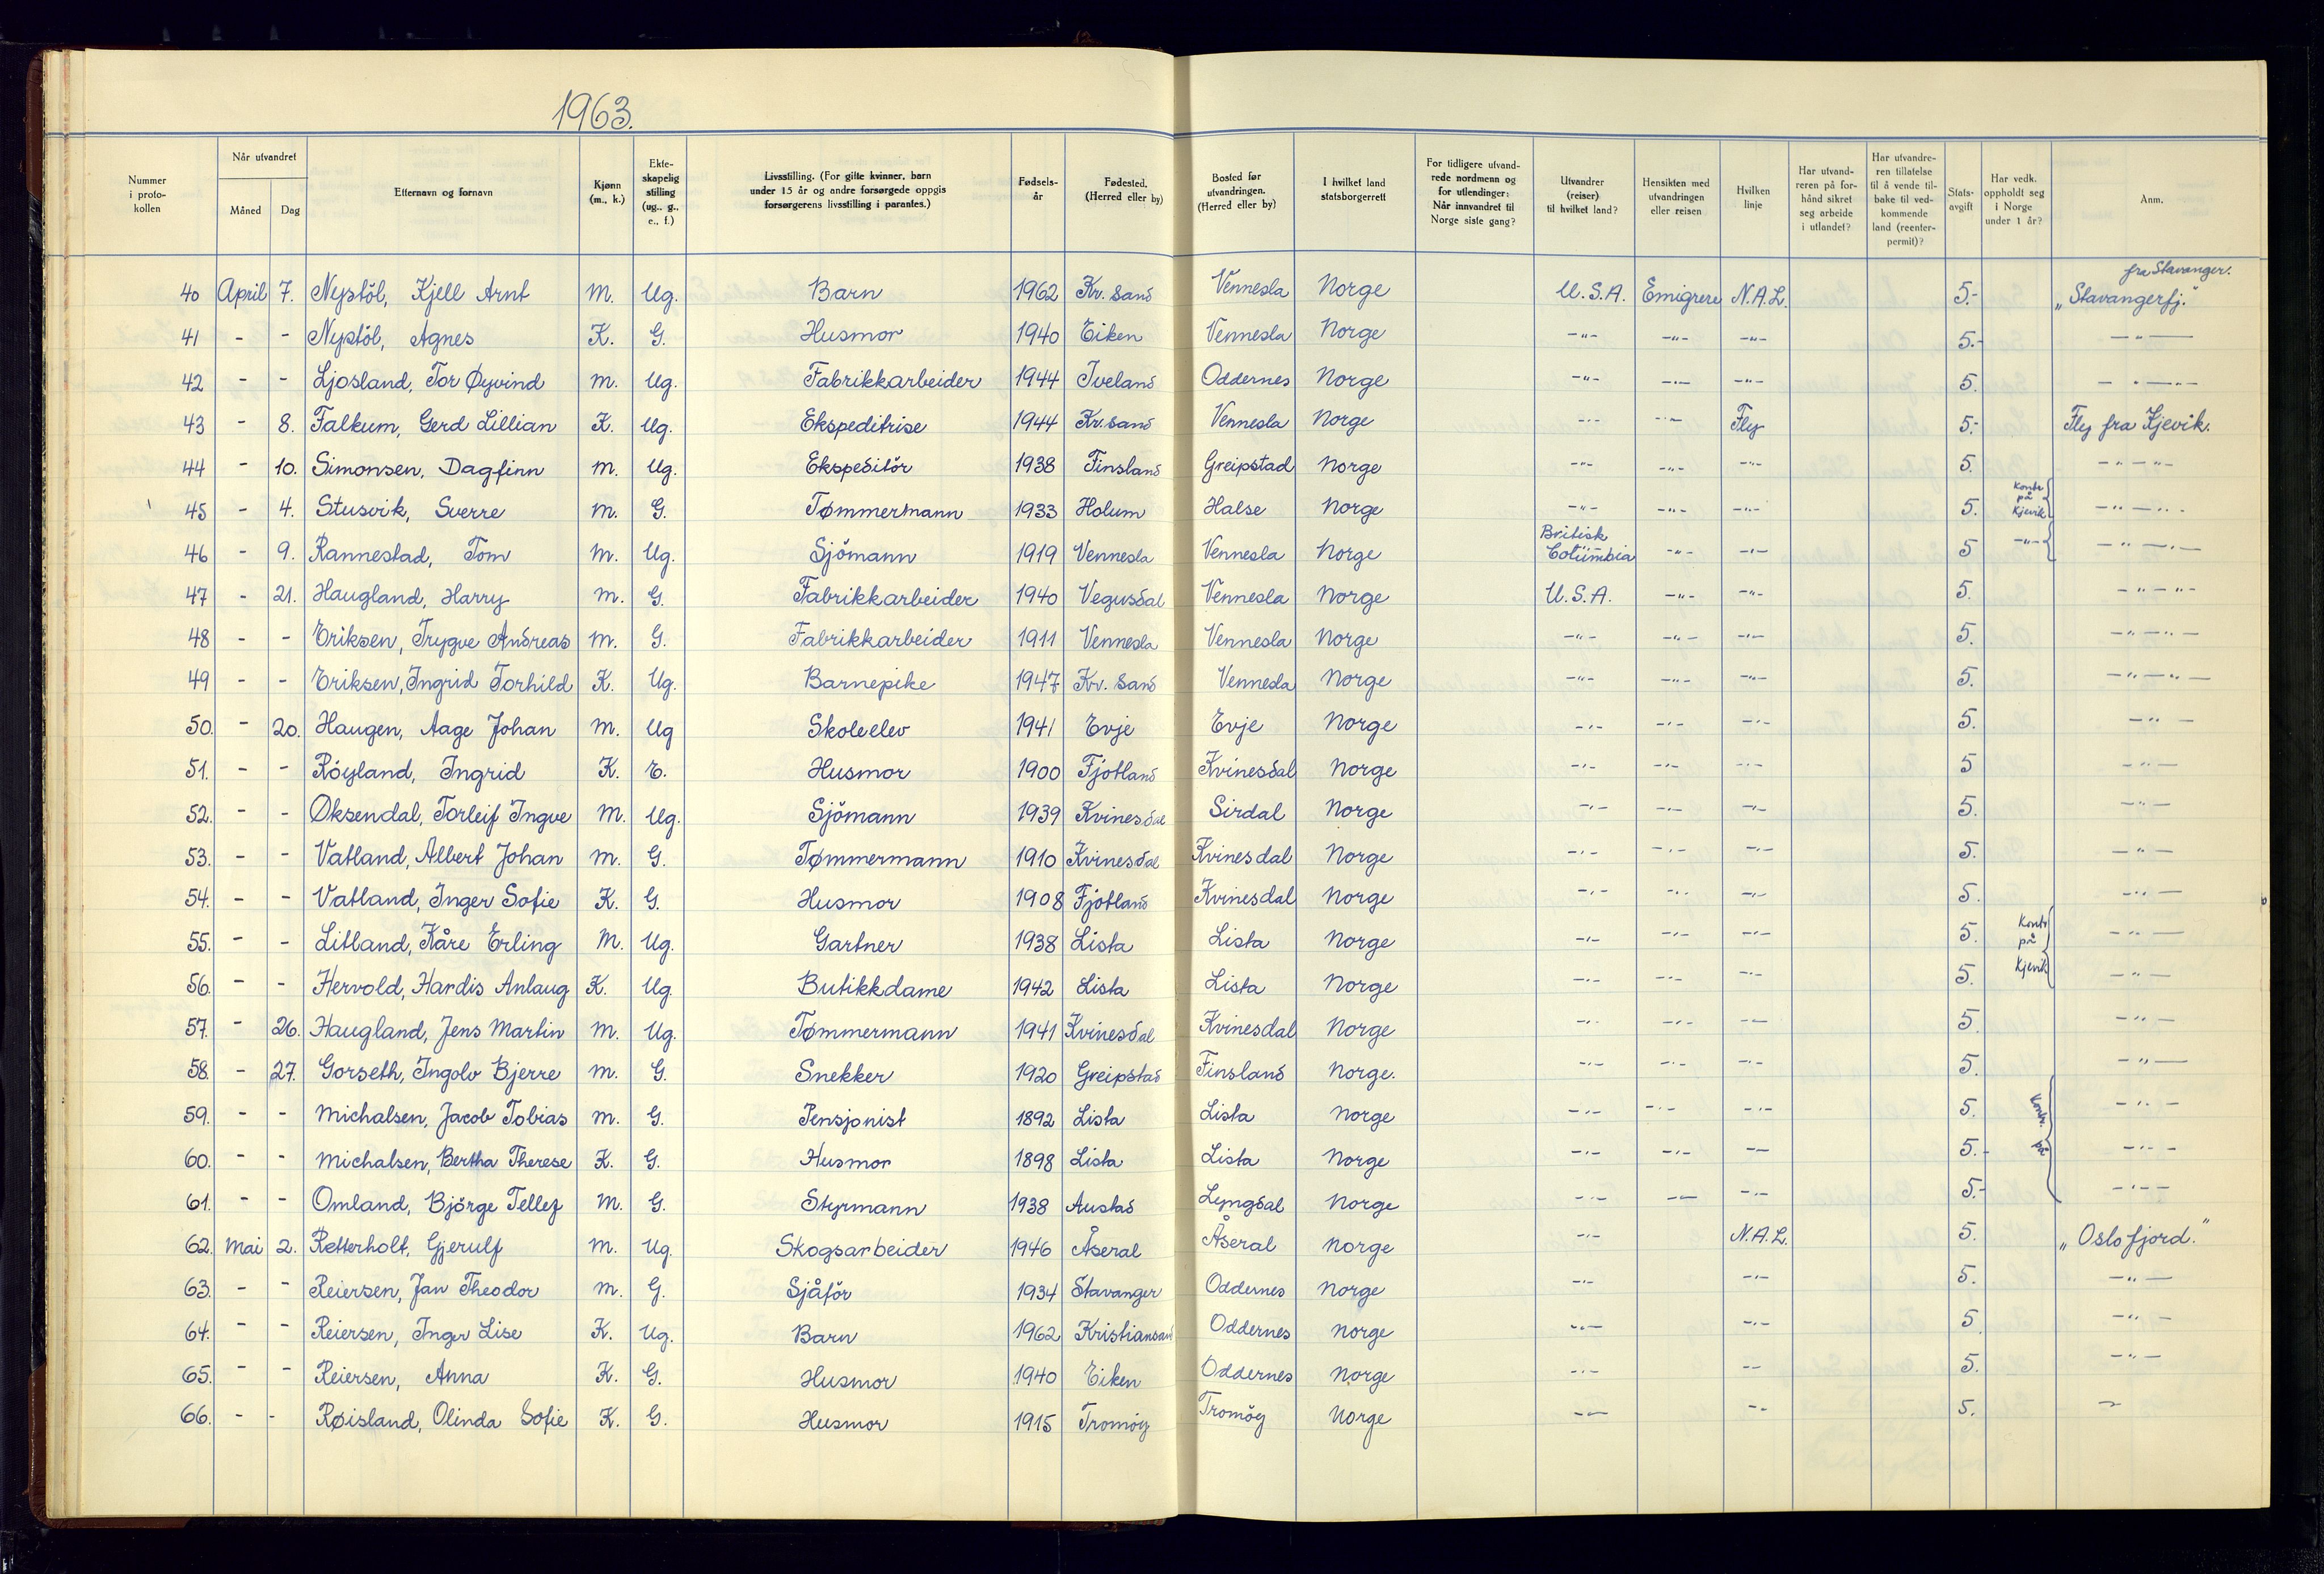 1963.
Nummer i proto-kollen | Når utvandret Måned Dag | Etternavn og fornavn | Kjønn (m., k.) | Ekte-skapelig stilling (ug., g., e., f.) | Livsstilling. (For gifte kvinner, barn under 15 år og andre forsørgede oppgis forsørgerens livsstilling i parantes.) | Fødsels-år | Fødested. (Herred eller by) | Bosted før utvandringen. (Herred eller by) | I hvilket land statsborgerrett | For tidligere utvand-rede nordmenn og for utlendinger: Når innvandret til Norge siste gang? | Utvandrer (reiser) til hvilket land? | Hensikten med utvandringen eller reisen | Hvilken linje | Har utvand-reren på for-hånd sikret seg arbeide i utlandet? | Har utvandre-ren tillatelse til å vende til-bake til ved-kommende land (reenter-permit)? | Stats-avgift | Har vedk. oppholdt seg i Norge under 1 år? | Anm.
40 April 7. Nystöl, Kjell Arnt M. Ug. Barn 1962 Kr. Sand Vennesla Norge U.S.A. Emigrere N.A.L. 5.- fra Stavanger. „Stavangerfj."
41 - - Nystöl, Agnes K. G. Husmor 1940 Eiken Vennesla Norge -"- -"- -"- 5.- -"-
42 - - Ljosland, Tor Øyvind M. Ug. Fabrikkarbeider 1944 Iveland Oddernes Norge -"- -"- -"- 5. -"-"-
43 - 8. Falkum, Gerd Lillian K. Ug. Ekspeditrise 1944 Kr. sand Vennesla Norge -"- -"- Fly 5.- Fly fra Kjevik.
44 - 10. Simonsen, Dagfinn M. Ug. Ekspeditör 1938 Finsland Greipstad Norge -"- -"- -"- 5. -"-"-
45 - 4. Stusvik, Sverre M. G. Tømmermann 1933 Holum Halse Norge -"- -"- -"- 5. Kontr på Kjevik -"-"-
46 - 9. Rannestad, Tom M. Ug. Sjömann 1919 Vennesla Vennesla Norge Britisk Columbia -"- -"- 5 -"- -"-"-
47 - 21. Haugland, Harry M. G. Fabrikkarbeider 1940 Vegusdal Vennesla Norge U.S.A. -"- -"- 5. -"-"-
48 - - Eriksen, Trygve Andreas M. G. Fabrikkarbeider 1911 Vennesla Vennesla Norge -"- -"- -"- 5. -"-"-
49 - - Eriksen, Ingrid Torhild K. Ug. Barnepike 1947 Kr. Sand Vennesla Norge -"- -"- -"- 5. -"-"-
50. - 20. Haugen, Aage Johan M. Ug Skoleelev 1941 Evje Evje Norge -"- -"- -"- 5. -"-
51. - - Röyland, Ingrid K. E. Husmor 1900 Fjotland Kvinesdal Norge -"- -"- -"- 5 -"-
52. - - Øksendal, Torleif Ingve M. Ug. Sjömann 1939 Kvinesdal Sirdal Norge -"- -"- -"- 5. -"-
53. - - Vatland, Albert Johan M. G. Tømmermann 1910 Kvinesdal Kvinesdal Norge -"- -"- -"- 5. -"-
54. - - Vatland, Inger Sofie K. G. Husmor 1908 Fjotland Kvinesdal Norge -"- -"- -"- 5. -"-
55. - - Litland, Kåre Erling M. Ug. Gartner 1938 Lista Lista Norge -"- -"- -"- 5. Kontr på Kjevik -"-
56. - - Hervold, Hardis Anlaug K. Ug. Butikkdame 1942 Lista Lista Norge -"- -"- -"- 5. -"-
57. - 26. Haugland, Jens Martin M. Ug. Tømmermann 1941 Kvinesdal Kvinesdal Norge -"- -"- -"- 5. -"-
58. - 27. Gorseth, Ingolv Bjerre M. G. Snekker 1920 Greipstad Finsland Norge. -"- -"- -"- 5. -"-
59. - - Michalsen, Jacob Tobias M. G. Pensjonist 1892 Lista Lista Norge -"- -"- -"- 5. Kontr. på -"-
60. - - Michalsen, Bertha Therese K. G. Husmor 1898 Lista Lista Norge -"- -"- -"- 5.- -"-
61. - - Omland, Björge Tellef M. G. Styrmann 1938 Austad Lyngdal Norge -"- -"- -"- 5.- -"-
62. Mai 2. Retterholt, Gjerulf M. Ug. Skogsarbeider 1946 Åseral Åseral Norge -"- N.A.L. 5. „Oslofjord."
63. - - Reiersen, Jan Theodor M. G. Sjåför 1934 Stavanger Oddernes Norge -"- -"- 5. -"-
64. - - Reiersen, Inger Lise K. Ug. Barn 1962 Kristiansand Oddernes Norge -"- -"- 5 -"-
65. - - Reiersen, Anna K. G. Husmor 1940 Eiken Oddernes Norge -"- -"- 5. -"-
66. - - Røisland, Olinda Sofie K. G. Husmor 1915 Tromöy Tromöy Norge -"- -"- 5. -